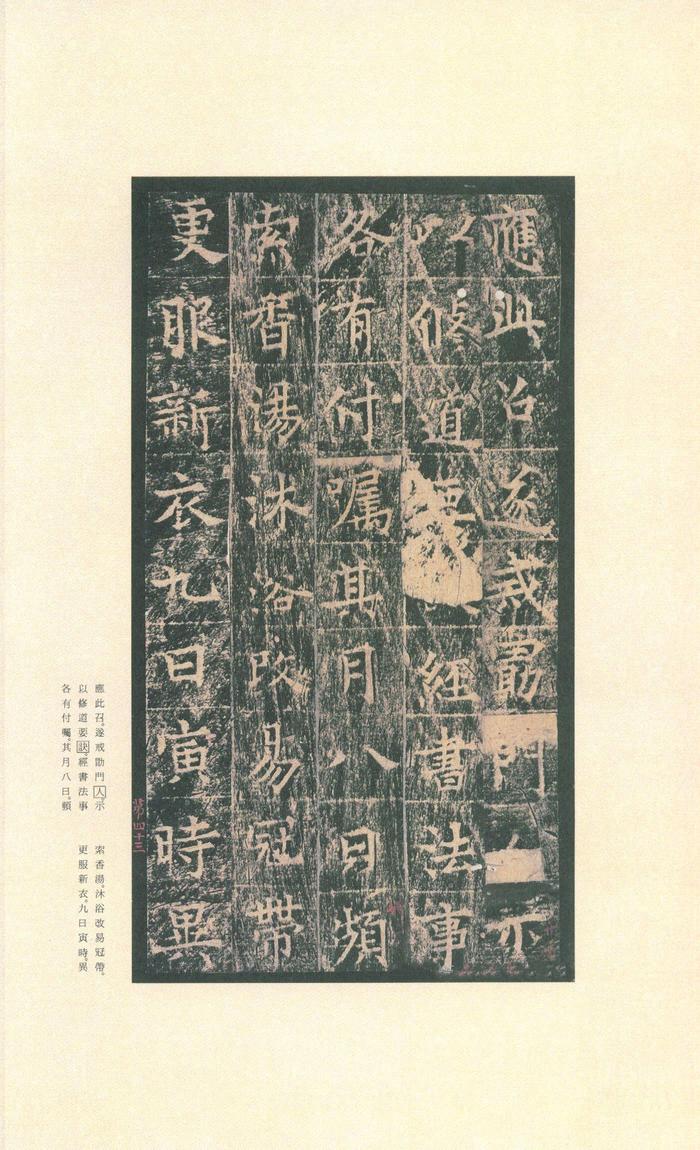 應此召遂戒勖門示
以修道要經書法事
各有付囑其月八日頻
索香湯沐浴改易冠帶
更服新衣九日寅時異
第四十三
應此召。遂戒勖門人示
以修道要訣。經書法事
各有付囑。其月八日。頻
索香湯。沐浴改易冠帶。
更服新衣。九日寅時。異